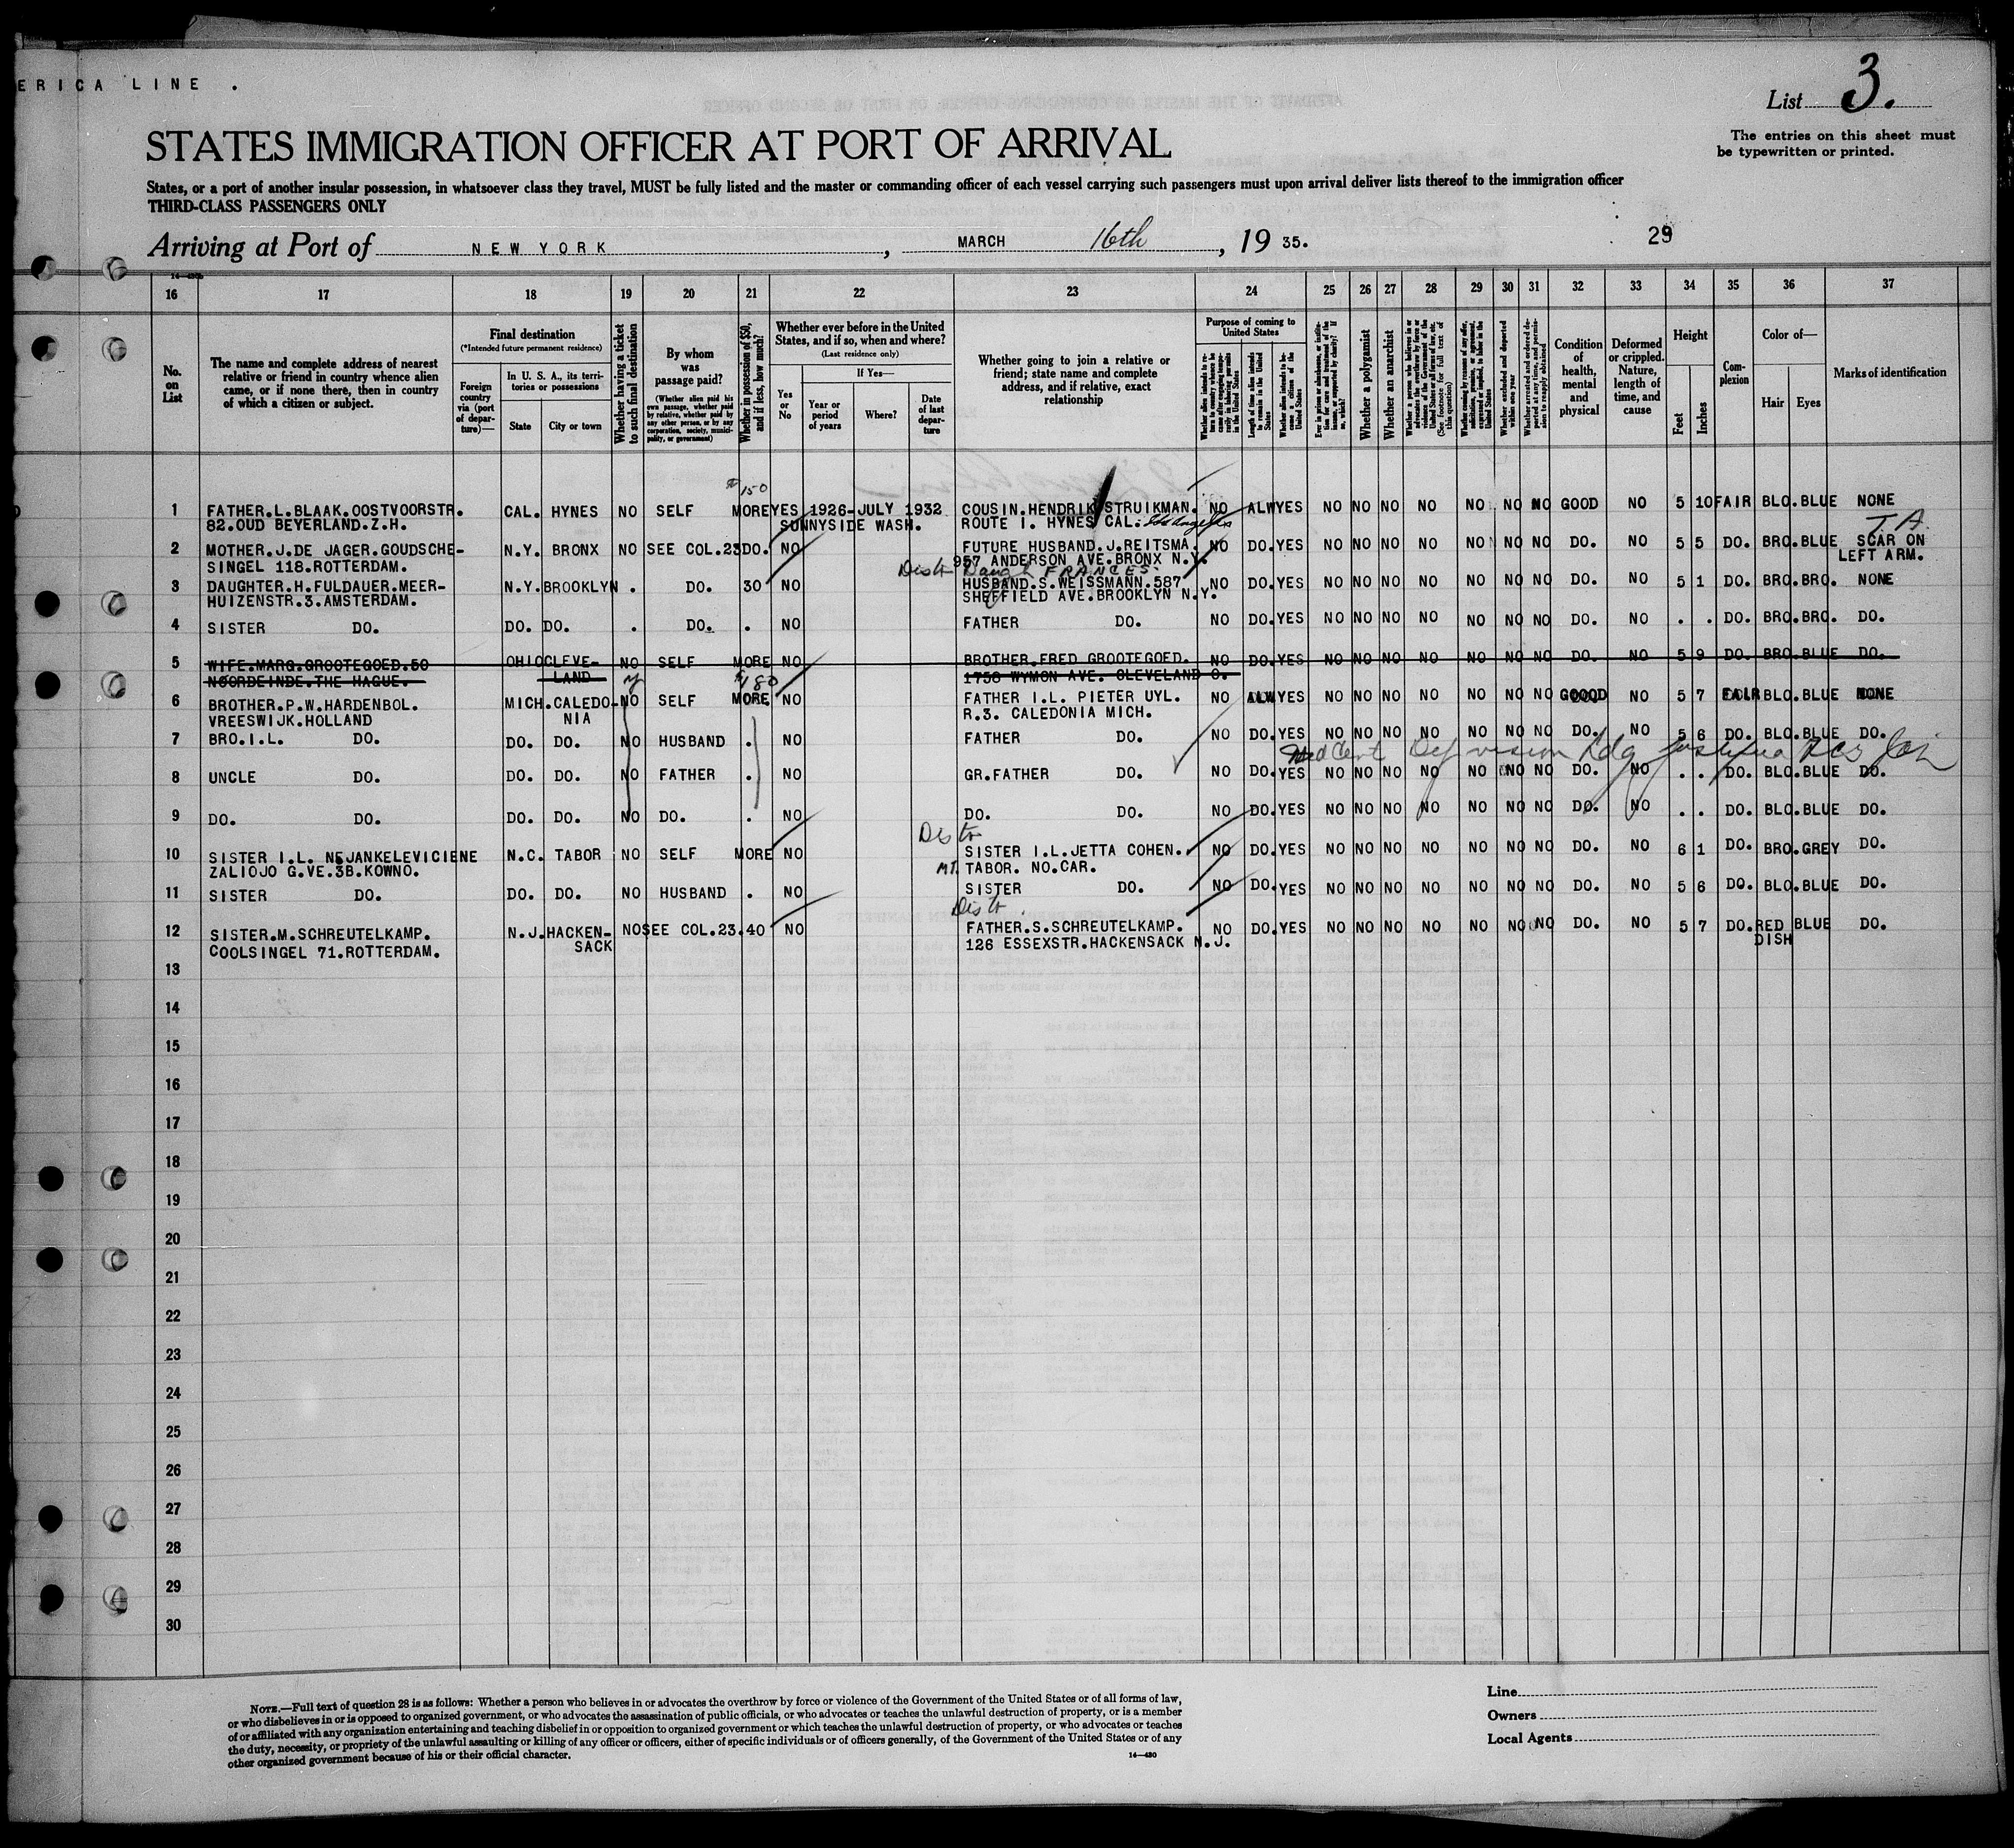 ERICA LINE .
List 3.
The entries on this sheet must
be typewritten or printed.
STATES IMMIGRATION OFFICER AT PORT OF ARRIVAL
States, or a port of another insular possession, in whatsoever class they travel, MUST be fully listed and the master or commanding officer of each vessel carrying such passengers must upon arrival deliver lists thereof to the immigration officer
THIRD-CLASS PASSENGERS ONLY
Arriving at Port of NEW YORK, MARCH 16th, 19 35.
29
16 17 18 19 20 21 22 23 24 25 26 27 28 29 30 31 32 33 34 35 36 37
No. on List
The name and complete address of nearest
relative or friend in country whence alien
came, or if none there, then in country
of which a citizen or subject.
Final destination
(*Intended future permanent residence)
Foreign country via (port of departure)—
In U. S. A., its territories or possessions
State
City or town
Whether having a ticket to such final destination
By whom was passage paid?
(Whether alien paid his own passage, whether paid by relative, whether paid by any other person, or by any corporation, society, municipality, or government)
Whether in possession of $50, and if less, how much?
Whether ever before in the United
States, and if so, when and where?
(Last residence only)
Yes or No
If Yes—
Year or period of years
Where?
Date of last departure
Whether going to join a relative or
friend; state name and complete
address, and if relative, exact
relationship
Purpose of coming to United States
Length of time alien intends to remain in the United States
Whether alien intends to become a citizen of the United States
Whether a polygamist
Whether an anarchist
Condition of health, mental and physical
Deformed or crippled. Nature, length of time, and cause
Height
Feet
Inches
Complexion
Color of—
Hair
Eyes
Marks of identification
$150
1 FATHER.L.BLAAK.OOSTVOORSTR. CAL. HYNES NO SELF MORE YES 1926-JULY 1932 COUSIN.HENDRIK STRUIKMAN. NO ALW YES NO NO NO NO NO NO NO GOOD NO 5 10 FAIR BLO.BLUE NONE
82.OUD BEYERLAND.Z.H. SUNNYSIDE WASH. ROUTE 1. HYNES CAL. Los Angeles
T.A.
2 MOTHER.J.DE JAGER.GOUDSCHE- N.Y. BRONX NO SEE COL.23 DO. NO FUTURE HUSBAND.J.REITSMA. NO DO. YES NO NO NO NO NO NO NO DO. NO 5 5 DO. BRO.BLUE SCAR ON
SINGEL 118.ROTTERDAM. 957 ANDERSON AVE.BRONX N.Y. LEFT ARM.
Distr Daugh FRANCES.
3 DAUGHTER.H.FULDAUER.MEER- N.Y. BROOKLYN . DO. 30 NO HUSBAND.S.WEISSMANN.587 NO DO. YES NO NO NO NO NO NO NO DO. NO 5 1 DO. BRO.BRO. NONE
HUIZENSTR.3.AMSTERDAM. SHEFFIELD AVE.BROOKLYN N.Y.
4 SISTER DO. DO. DO. . DO. . NO FATHER DO. NO DO. YES NO NO NO NO NO NO NO DO. NO . . DO. BRO.BRO. DO.
5 WIFE.MARG.GROOTEGOED.50 OHIO CLEVE- NO SELF MORE NO BROTHER.FRED GROOTEGOED. NO DO. YES NO NO NO NO NO NO NO DO. NO 5 9 DO. BRO.BLUE DO.
NOORDEINDE.THE HAGUE. LAND 1758 WYMON AVE. CLEVELAND O.
$180
6 BROTHER.P.W.HARDENBOL. MICH. CALEDO- NO SELF MORE NO FATHER I.L. PIETER UYL. NO ALW YES NO NO NO NO NO NO NO GOOD NO 5 7 FAIR BLO.BLUE NONE
VREESWIJK.HOLLAND NIA R.3. CALEDONIA MICH.
7 BRO.I.L. DO. DO. DO. NO HUSBAND . NO FATHER DO. NO DO. YES NO NO NO NO NO NO NO DO. NO 5 6 DO. BLO.BLUE DO.
Med Cert Def vision
8 UNCLE DO. DO. DO. NO FATHER . NO GR.FATHER DO. NO DO. YES NO NO NO NO NO NO NO DO. NO . . DO. BLO.BLUE DO.
9 DO. DO. DO. DO. NO DO. . NO DO. DO. NO DO. YES NO NO NO NO NO NO NO DO. NO . . DO. BLO.BLUE DO.
Distr
10 SISTER I.L. NEJANKELEVICIENE N.C. TABOR NO SELF MORE NO SISTER I.L.JETTA COHEN. NO DO. YES NO NO NO NO NO NO NO DO. NO 6 1 DO. BRO.GREY DO.
ZALIOJO G.VE.3B.KOWNO. MT. TABOR. NO.CAR.
11 SISTER DO. DO. DO. NO HUSBAND . NO SISTER DO. NO DO. YES NO NO NO NO NO NO NO DO. NO 5 6 DO. BLO.BLUE DO.
Distr.
12 SISTER.M.SCHREUTELKAMP. N.J. HACKEN- NO SEE COL.23. 40 NO FATHER.S.SCHREUTELKAMP. NO DO. YES NO NO NO NO NO NO NO DO. NO 5 7 DO. RED BLUE DO.
COOLSINGEL 71.ROTTERDAM. SACK 126 ESSEXSTR.HACKENSACK N.J. DISH
13
14
15
16
17
18
19
20
21
22
23
24
25
26
27
28
29
30
NOTE.—Full text of question 28 is as follows: Whether a person who believes in or advocates the overthrow by force or violence of the Government of the United States or of all forms of law,
or who disbelieves in or is opposed to organized government, or who advocates the assassination of public officials, or who advocates or teaches the unlawful destruction of property, or is a member
of or affiliated with any organization entertaining and teaching disbelief in or opposition to organized government or which teaches the unlawful destruction of property, or who advocates or teaches
the duty, necessity, or propriety of the unlawful assaulting or killing of any officer or officers, either of specific individuals or of officers generally, of the Government of the United States or of any
other organized government because of his or their official character.
14—430
Line
Owners
Local Agents